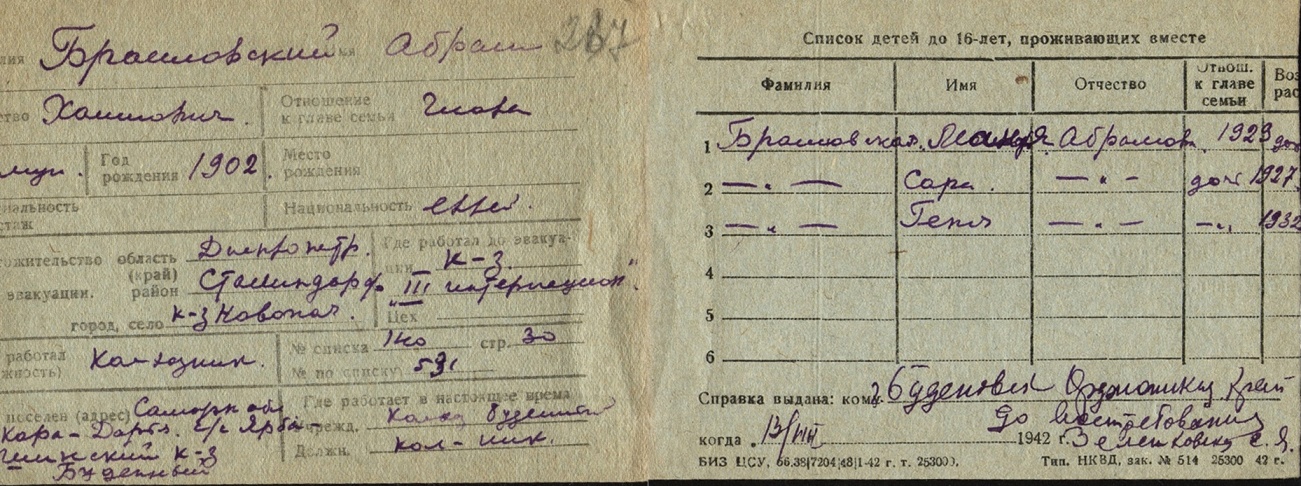 лия Браиловский имя Абрам 267
ство Хаимович. Отношение к главе семьи Глава
муж. Год рождения 1902. Место рождения
нальность Национальность еврей.
стаж
тожительство область Днепропетр. Где работал до эвакуа-
(край) ции К-з
эвакуации. район Сталиндорф. "III интернацион".
город, село к-з Цех
работал Колхозник. № списка 140 стр. 30
жность) № по списку 591
поселен (адрес) Самарк обл Где работает в настоящее время
Кара-Дарья. с/с учрежд. Колхоз Буденный
к-з Должн. кол-ник.
Буденный
Список детей до 16-лет, проживающих вместе
Фамилия Имя Отчество Отнош. к главе семьи Воз рас
1 Браиловская. Абрамов. 1923 доч
2 — " — Сара. — " — доч 1927
3 — " — Геня — " — — " 1932
4
5
6
Справка выдана: кому Буденовск Орджоникид край
до востребования
когда 13/VIII 1942 г. Зеленковецк С. Я.
БИЗ ЦСУ, 66.38|7204|48|1-42 г. т. 253000. Тип. НКВД, зак. № 514 25300 42 г.